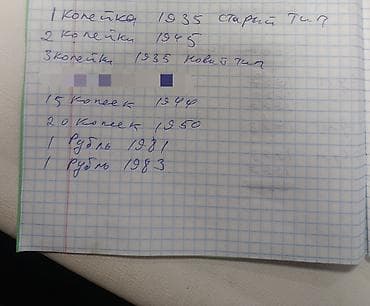 1 копейка 1935 старый тип
2 копейки 1945
3 копейки 1935 новый тип
15 копеек 1944
20 копеек 1950
1 Рубль 1981
1 Рубль 1983